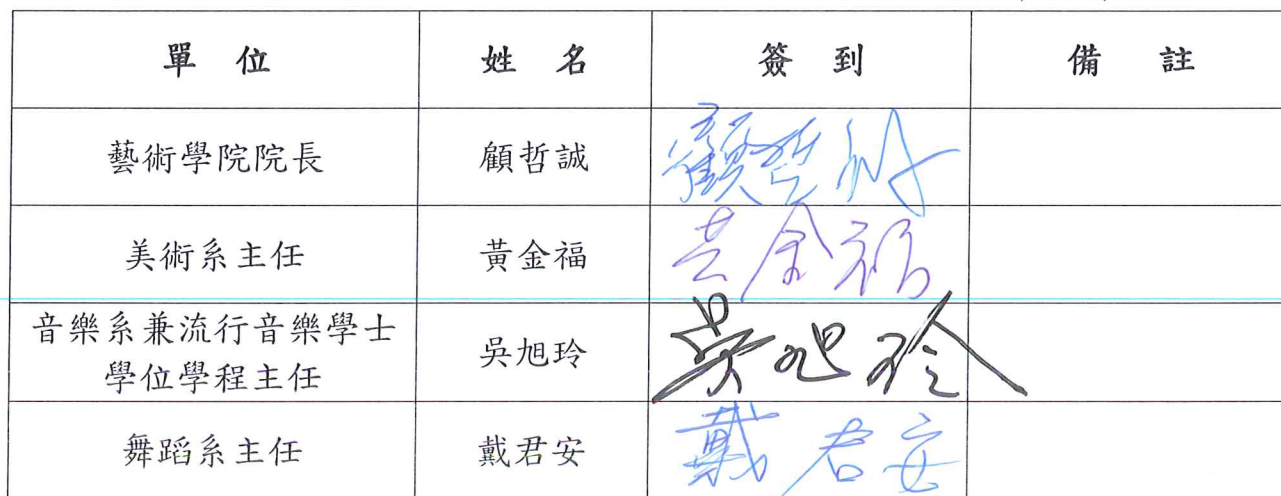 單 位 姓 名 簽 到 備 註
藝術學院院長 顧哲誠 顧哲誠
美術系主任 黃金福 黃金福
音樂系兼流行音樂學士
學位學程主任 吳旭玲 吳旭玲
舞蹈系主任 戴君安 戴君安